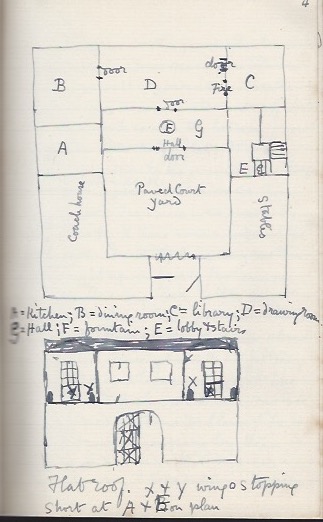 4
door
door
B
D
C
Fire
door
E
G
A
Hall
door
E
Coach house
Paved Court
yard
Stables
A = Kitchen; B = dining room; C = library; D = drawing room
G = Hall; F = fountain; E = lobby & stairs
X
X
X
X
Flat roof. X & Y wings stopping
short at A & E on plan